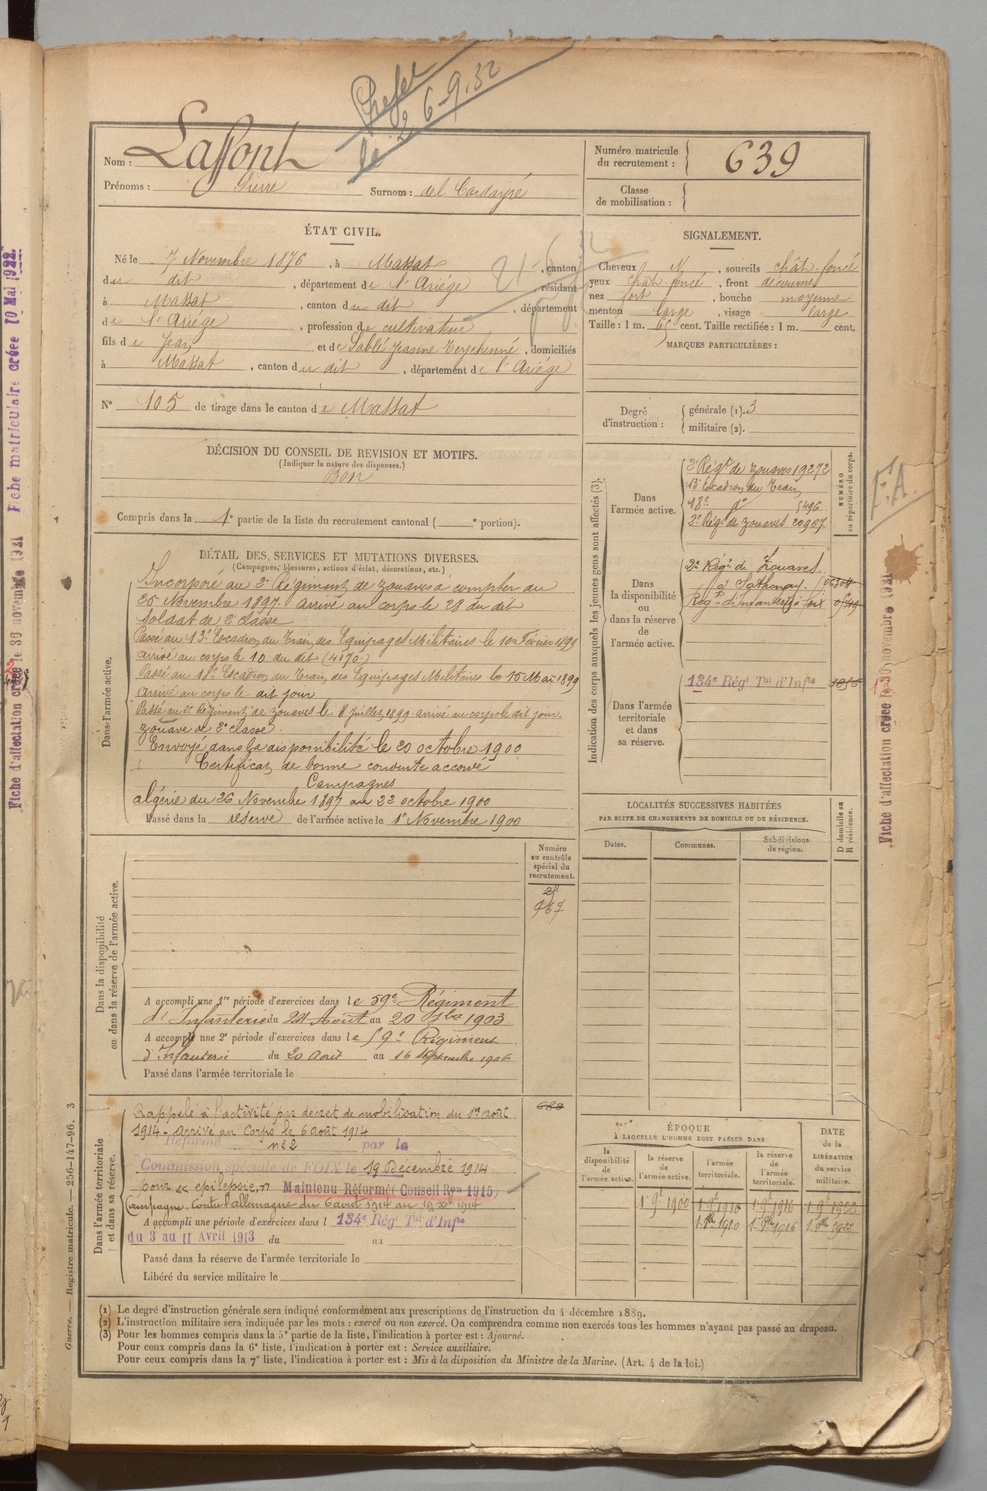 le 6-9-32
Nom : Laffont
Prénoms : Pierre Surnom : del Cardayré
Numéro matricule du recrutement : 639
Classe de mobilisation :
ÉTAT CIVIL.
Né le 7 Novembre 1876, à Massat, canton
du dit, département de l'Ariège, résidant
à Massat, canton du dit, département
de l'Ariège, profession de cultivateur
fils de Jean et de Sablé Jeanne, domiciliés
à Massat, canton du dit, département de l'Ariège
N° 105 de tirage dans le canton de Massat
SIGNALEMENT.
Cheveux N, sourcils chât. foncé
yeux chât. foncé, front découvert
nez fort, bouche moyenne
menton large, visage large
Taille : 1 m. 65 cent. Taille rectifiée : 1 m. cent.
MARQUES PARTICULIÈRES :
Degré d'instruction : générale (1). 3
militaire (2).
DÉCISION DU CONSEIL DE REVISION ET MOTIFS.
(Indiquer la nature des dispenses.)
Bon
Compris dans la 1e partie de la liste du recrutement cantonal ( e portion).
DÉTAIL DES SERVICES ET MUTATIONS DIVERSES.
(Campagnes, blessures, actions d'éclat, décorations, etc.)
Dans l'armée active.
Incorporé au 2e Régiment de zouaves à compter du
25 Novembre 1897. arrivé au corps le 28 du dit
soldat de 2e classe
Passé au 13e Escadron du Train des Equipages Militaires le 10 Février 1899
arrivé au corps le 10 du dit (4170)
Passé au 18e Escadron du Train des Equipages Militaires le 15 Mai 1899
arrivé au corps le dit jour
Passé au 2e Régiment de zouaves le 8 juillet 1899 arrivé au corps le dit jour.
zouave de 2e classe.
Envoyé dans la disponibilité le 20 octobre 1900
Certificat de bonne conduite accordé
Campagnes
algérie du 26 Novembre 1897 au 22 octobre 1900
Passé dans la réserve de l'armée active le 1er Novembre 1900
Indication des corps auxquels les jeunes gens sont affectés (3).
NUMÉRO au répertoire du corps.
Dans l'armée active.
2e Régt de zouaves 19272
13e Escadron du Train
18e do 5496
2e Régt de zouaves 20907
Dans la disponibilité ou dans la réserve de l'armée active.
2e Régt de Zouaves
Sathonay
Régt d'Infanterie à Foix
Dans l'armée territoriale et dans sa réserve.
134e Régt Tal d'Infie
F.A.
LOCALITÉS SUCCESSIVES HABITÉES
PAR SUITE DE CHANGEMENTS DE DOMICILE OU DE RÉSIDENCE.
Dates. Communes. Subdivisions de région. D domicile ou R résidence.
Numéro au contrôle spécial du recrutement.
Dans la disponibilité ou dans la réserve de l'armée active.
A accompli une 1re période d'exercices dans le 59e Régiment
d'Infanterie du 24 Août au 20 7bre 1903
A accompli une 2e période d'exercices dans le 59e Régiment
d'Infanterie du 20 Août au 16 Septembre 1906
Passé dans l'armée territoriale le
Dans l'armée territoriale et dans sa réserve.
Rappelé à l'activité par décret de mobilisation du 1er Août
1914 - arrivé au Corps le 6 août 1914
Réformé n°2 par la
Commission spéciale de FOIX le 19 Décembre 1914
pour "epilepsie" Maintenu Réformé (Conseil Ron 1915)
Campagne contre l'allemagne du 6 août 1914 au 19 Xbre 1914
A accompli une période d'exercices dans l 134e Régt Tal d'Infie
du 3 au 11 Avril 1913 du au
Passé dans la réserve de l'armée territoriale le
Libéré du service militaire le
ÉPOQUE
À LAQUELLE L'HOMME DOIT PASSER DANS
la disponibilité de l'armée active. la réserve de l'armée active. l'armée territoriale. la réserve de l'armée territoriale.
DATE de la LIBÉRATION du service militaire.
1er 9bre 1900
(1) Le degré d'instruction générale sera indiqué conformément aux prescriptions de l'instruction du 4 décembre 1889.
(2) L'instruction militaire sera indiquée par les mots : exercé ou non exercé. On comprendra comme non exercés tous les hommes n'ayant pas passé au drapeau.
(3) Pour les hommes compris dans la 5e partie de la liste, l'indication à porter est : Ajourné.
Pour ceux compris dans la 6e liste, l'indication à porter est : Service auxiliaire.
Pour ceux compris dans la 7e liste, l'indication à porter est : Mis à la disposition du Ministre de la Marine. (Art. 4 de la loi.)
Guerre. — Registre matricule. — 256-147-96. 3
Fiche d'affectation créée le 30 novembre 1921
Fiche matriculaire créée 10 Mai 1922.
Fiche d'affectation créée le 30 novembre 1931